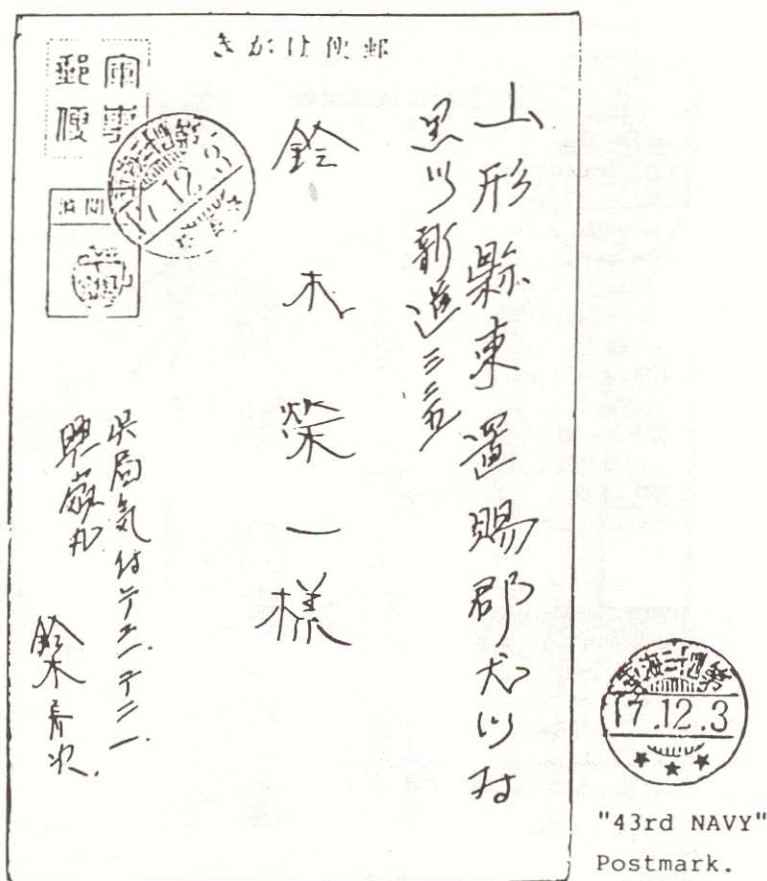 きがは便郵
軍事
郵便
検閲
17.12.3
山形縣東置賜郡犬川村
黒川新道三二五
鈴木榮一様
呉局気付テ二一テ二一
鈴木
第四十三海軍
17.12.3
"43rd NAVY"
Postmark.